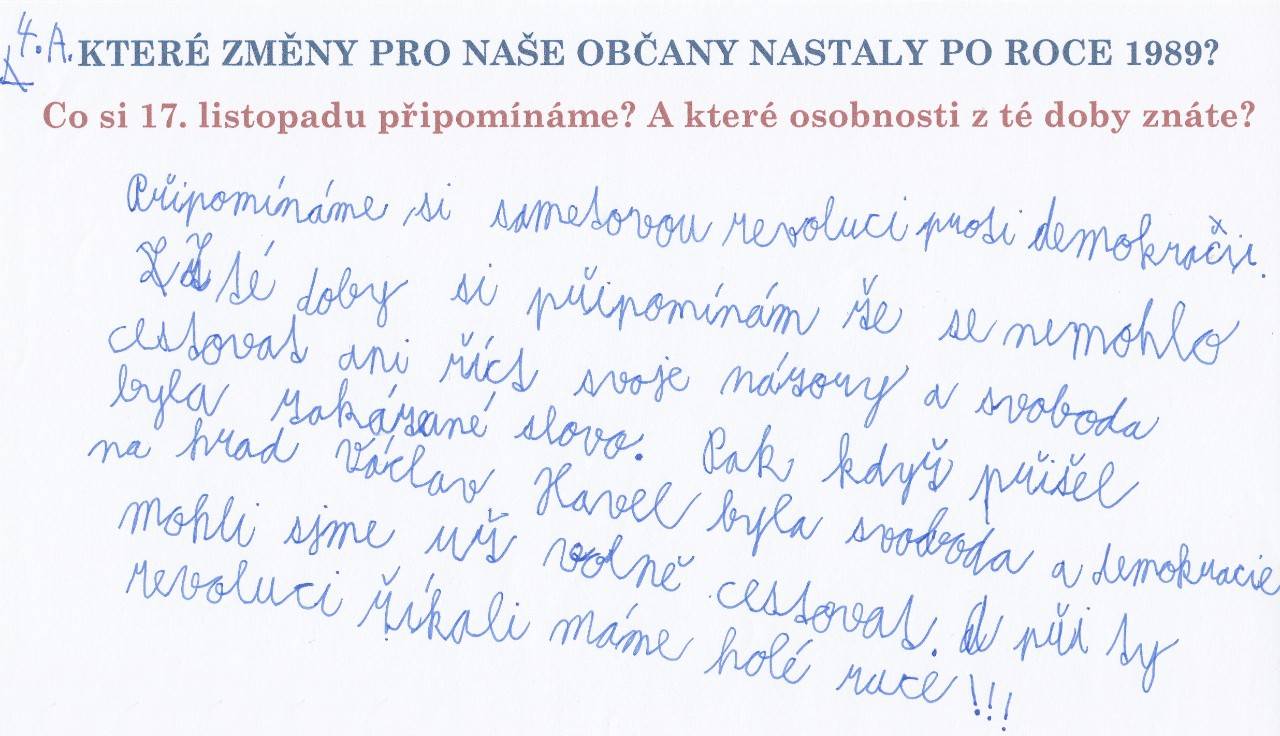 4. A.
KTERÉ ZMĚNY PRO NAŠE OBČANY NASTALY PO ROCE 1989?
Co si 17. listopadu připomínáme? A které osobnosti z té doby znáte?
Připomínáme si sametovou revoluci proti demokračii.
Z té doby si připomínám že se nemohlo
cestovat ani říct svoje názory a svoboda
byla zakázané slovo. Pak když přišel
na hrad Václav Havel byla svoboda a demokracie
mohli sjme už volně cestovat. A při ty
revoluci říkali máme holé ruce!!!